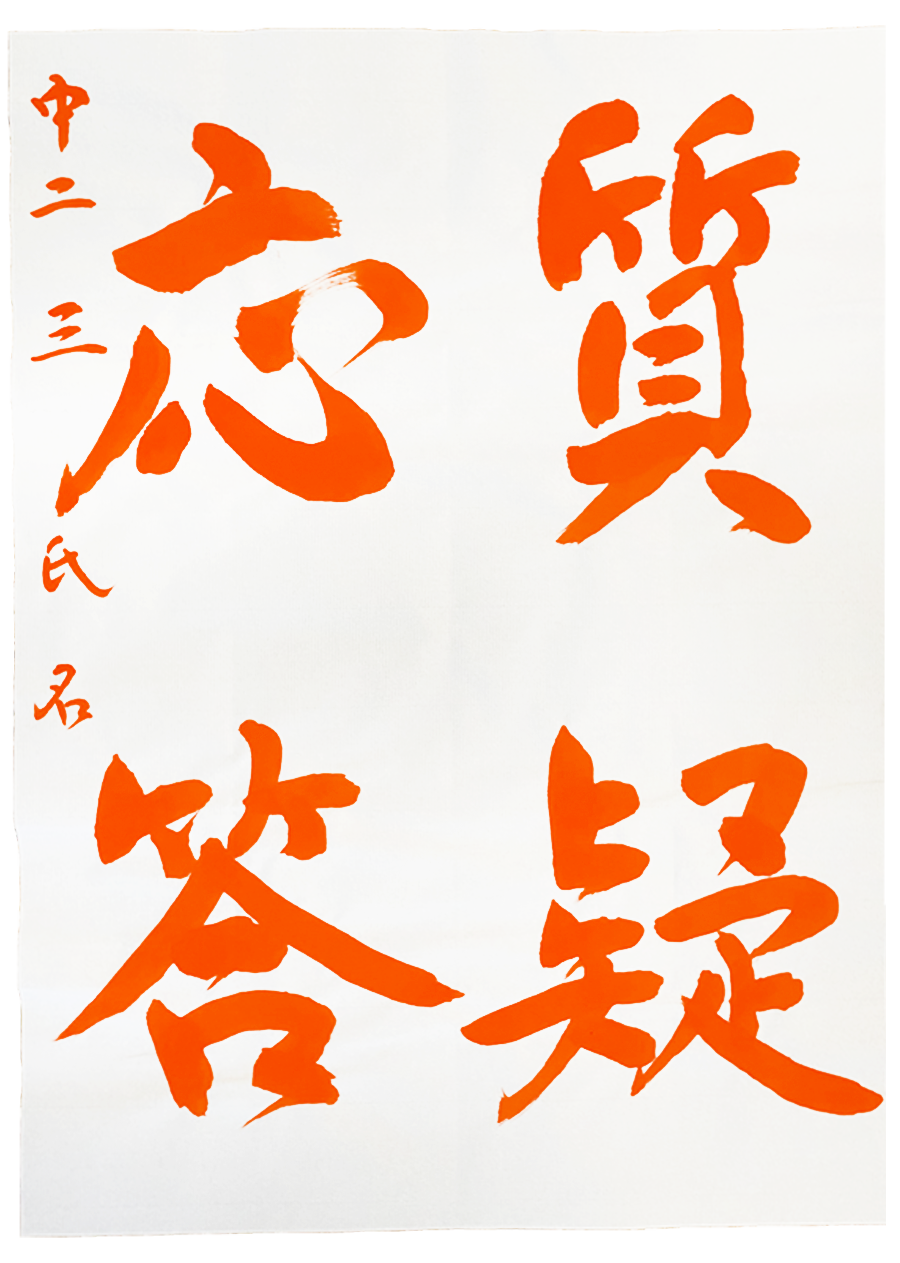 質疑
応答
中二三氏名